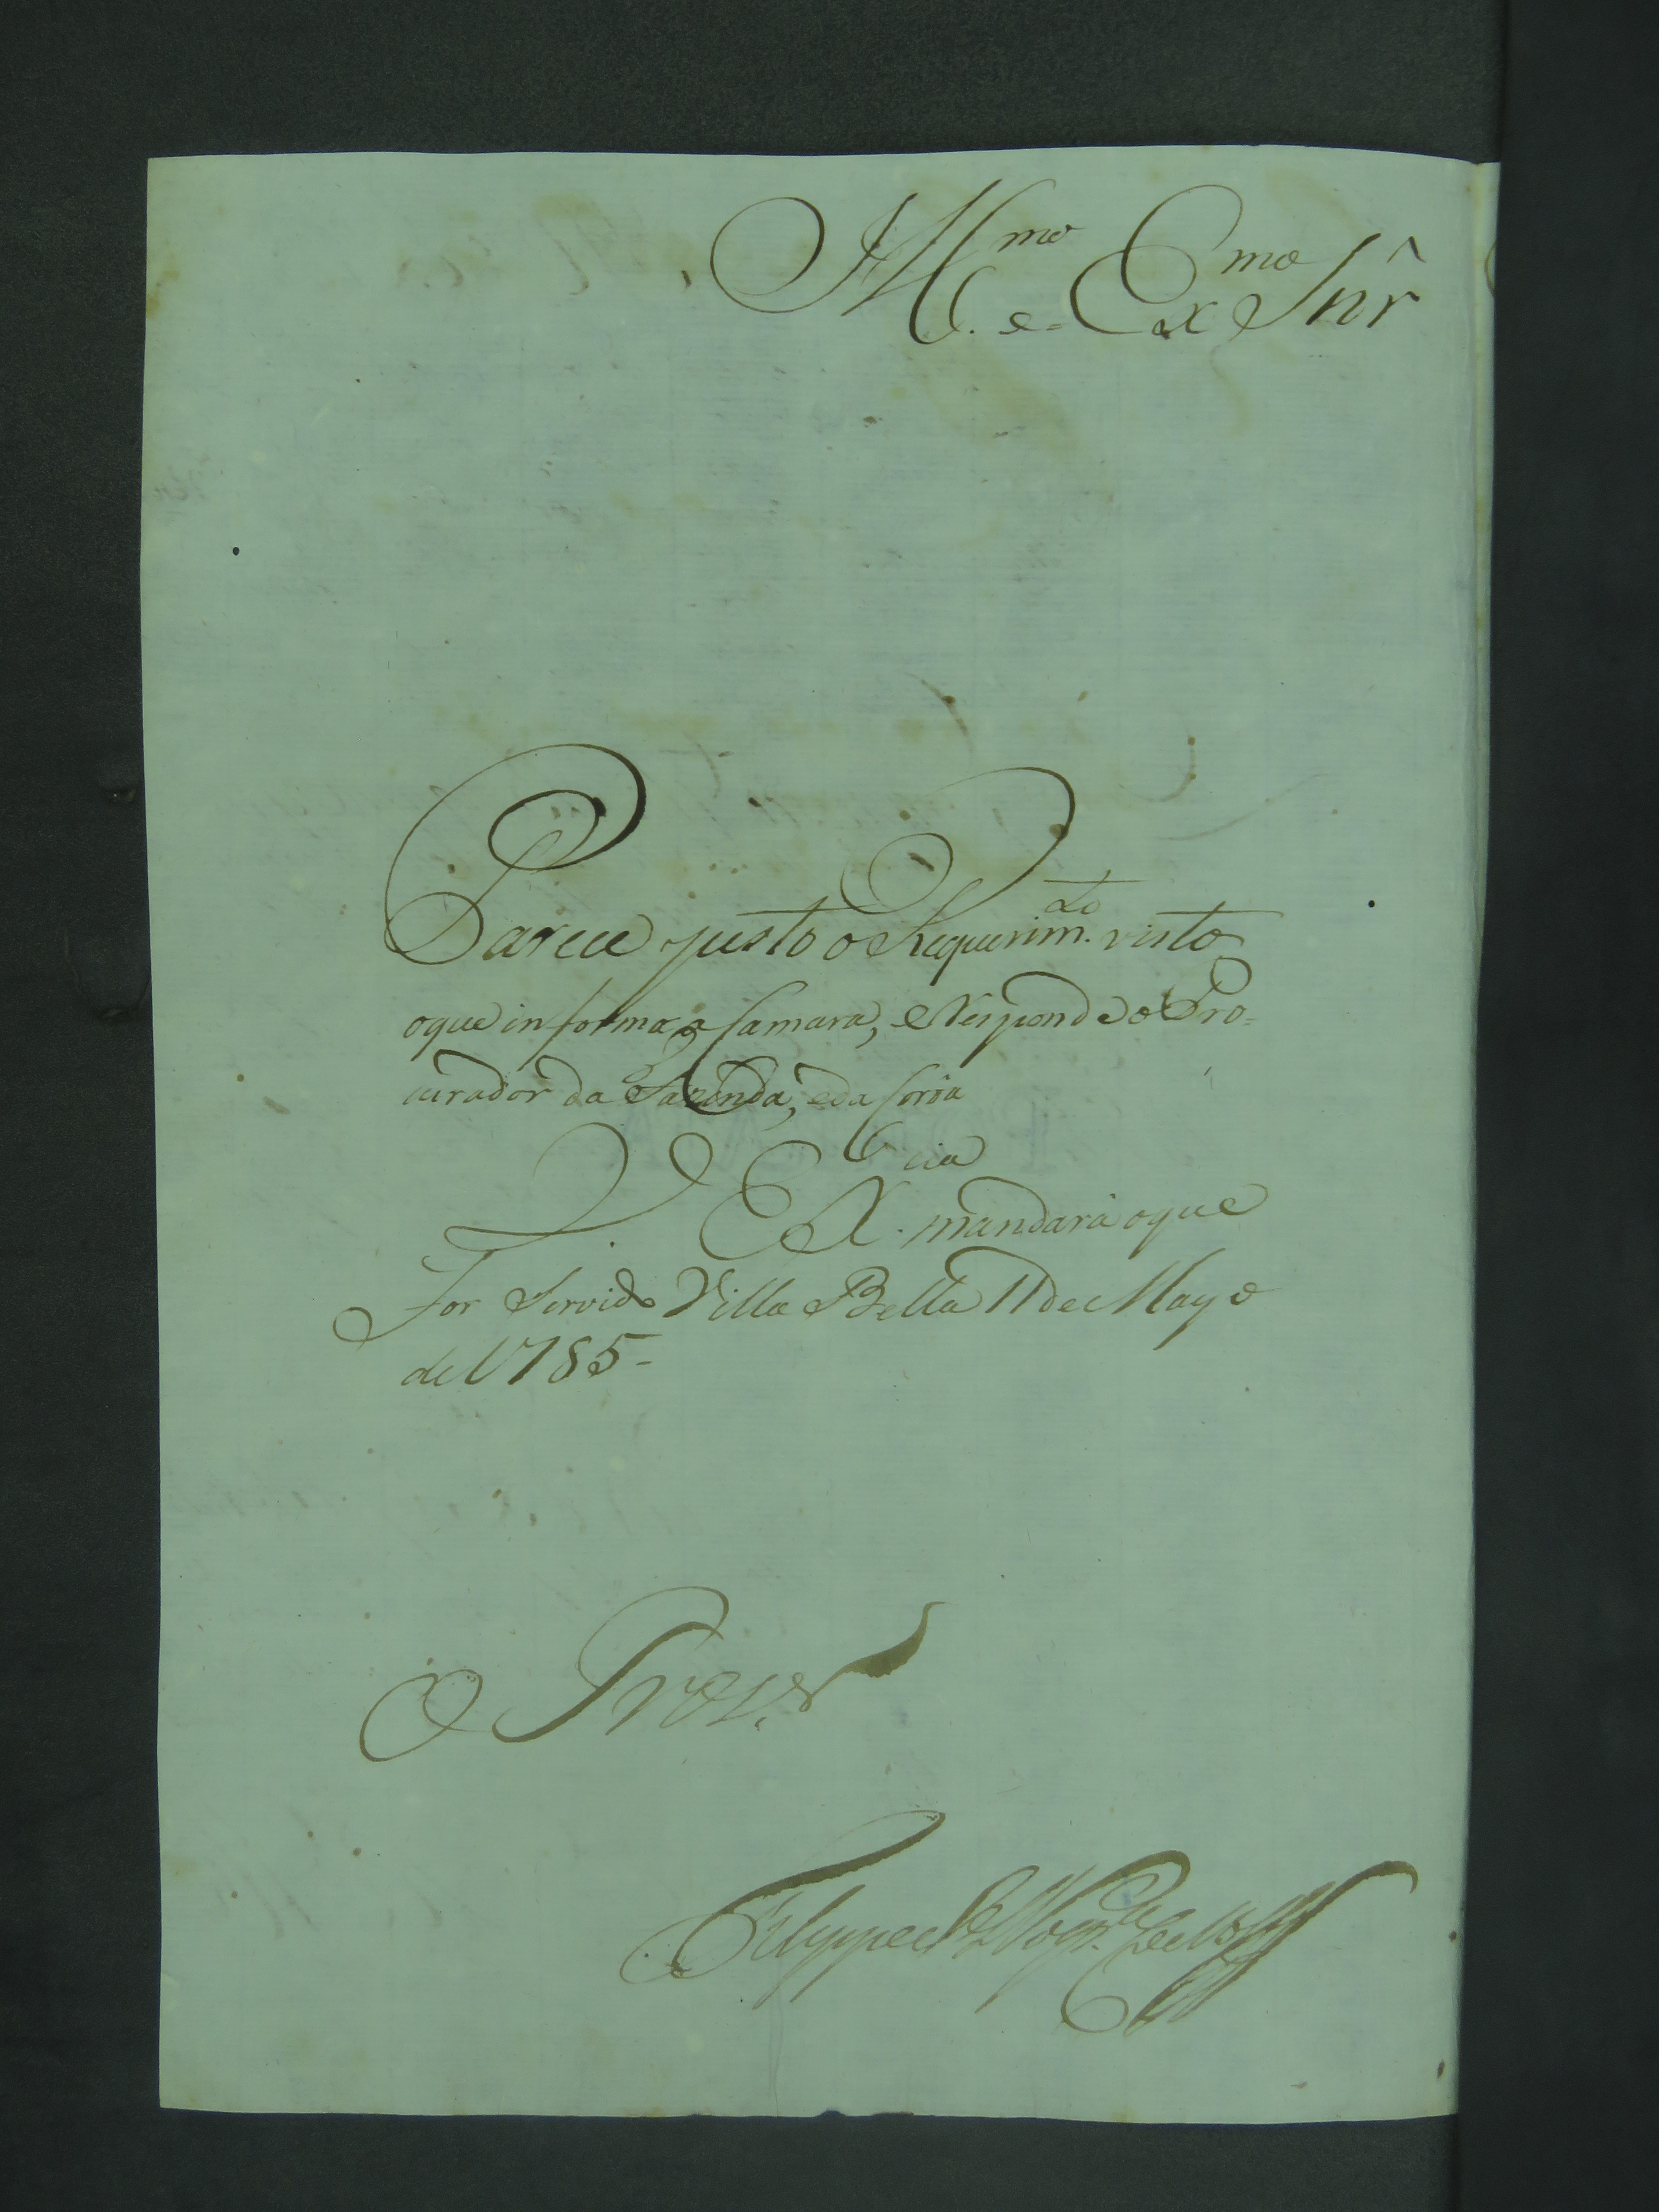 Ill.mo e Ex.mo Snr
Parece justo o Requerim.to visto
oque informa a Camara, e Responde o Pro=
curador da Fazenda, e da Coroa
V Ex.cia mandará oque
for Servido Villa Bella 11 de Mayo
de 1785-
O Prov.or
Felyppe Joze Nogr.a Coelho